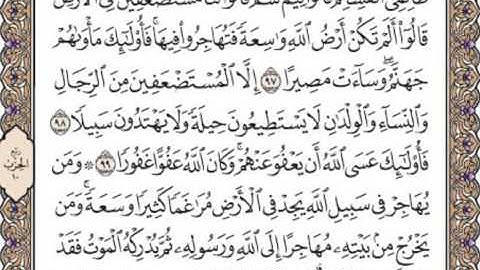 ظَالِمِىٓ أَنفُسِهِمْ قَالُوا۟ فِيمَ كُنتُمْ قَالُوا۟ كُنَّا مُسْتَضْعَفِينَ فِى ٱلْأَرْضِ
قَالُوٓا۟ أَلَمْ تَكُنْ أَرْضُ ٱللَّهِ وَٰسِعَةً فَتُهَاجِرُوا۟ فِيهَا فَأُو۟لَٰٓئِكَ مَأْوَىٰهُمْ
جَهَنَّمُ وَسَآءَتْ مَصِيرًا ٩٧ إِلَّا ٱلْمُسْتَضْعَفِينَ مِنَ ٱلرِّجَالِ
وَٱلنِّسَآءِ وَٱلْوِلْدَٰنِ لَا يَسْتَطِيعُونَ حِيلَةً وَلَا يَهْتَدُونَ سَبِيلًا ٩٨
فَأُو۟لَٰٓئِكَ عَسَى ٱللَّهُ أَن يَعْفُوَ عَنْهُمْ وَكَانَ ٱللَّهُ عَفُوًّا غَفُورًا ٩٩ ۞ وَمَن
يُهَاجِرْ فِى سَبِيلِ ٱللَّهِ يَجِدْ فِى ٱلْأَرْضِ مُرَٰغَمًا كَثِيرًا وَسَعَةً وَمَن
يَخْرُجْ مِنۢ بَيْتِهِۦ مُهَاجِرًا إِلَى ٱللَّهِ وَرَسُولِهِۦ ثُمَّ يُدْرِكْهُ ٱلْمَوْتُ فَقَدْ
الحزب